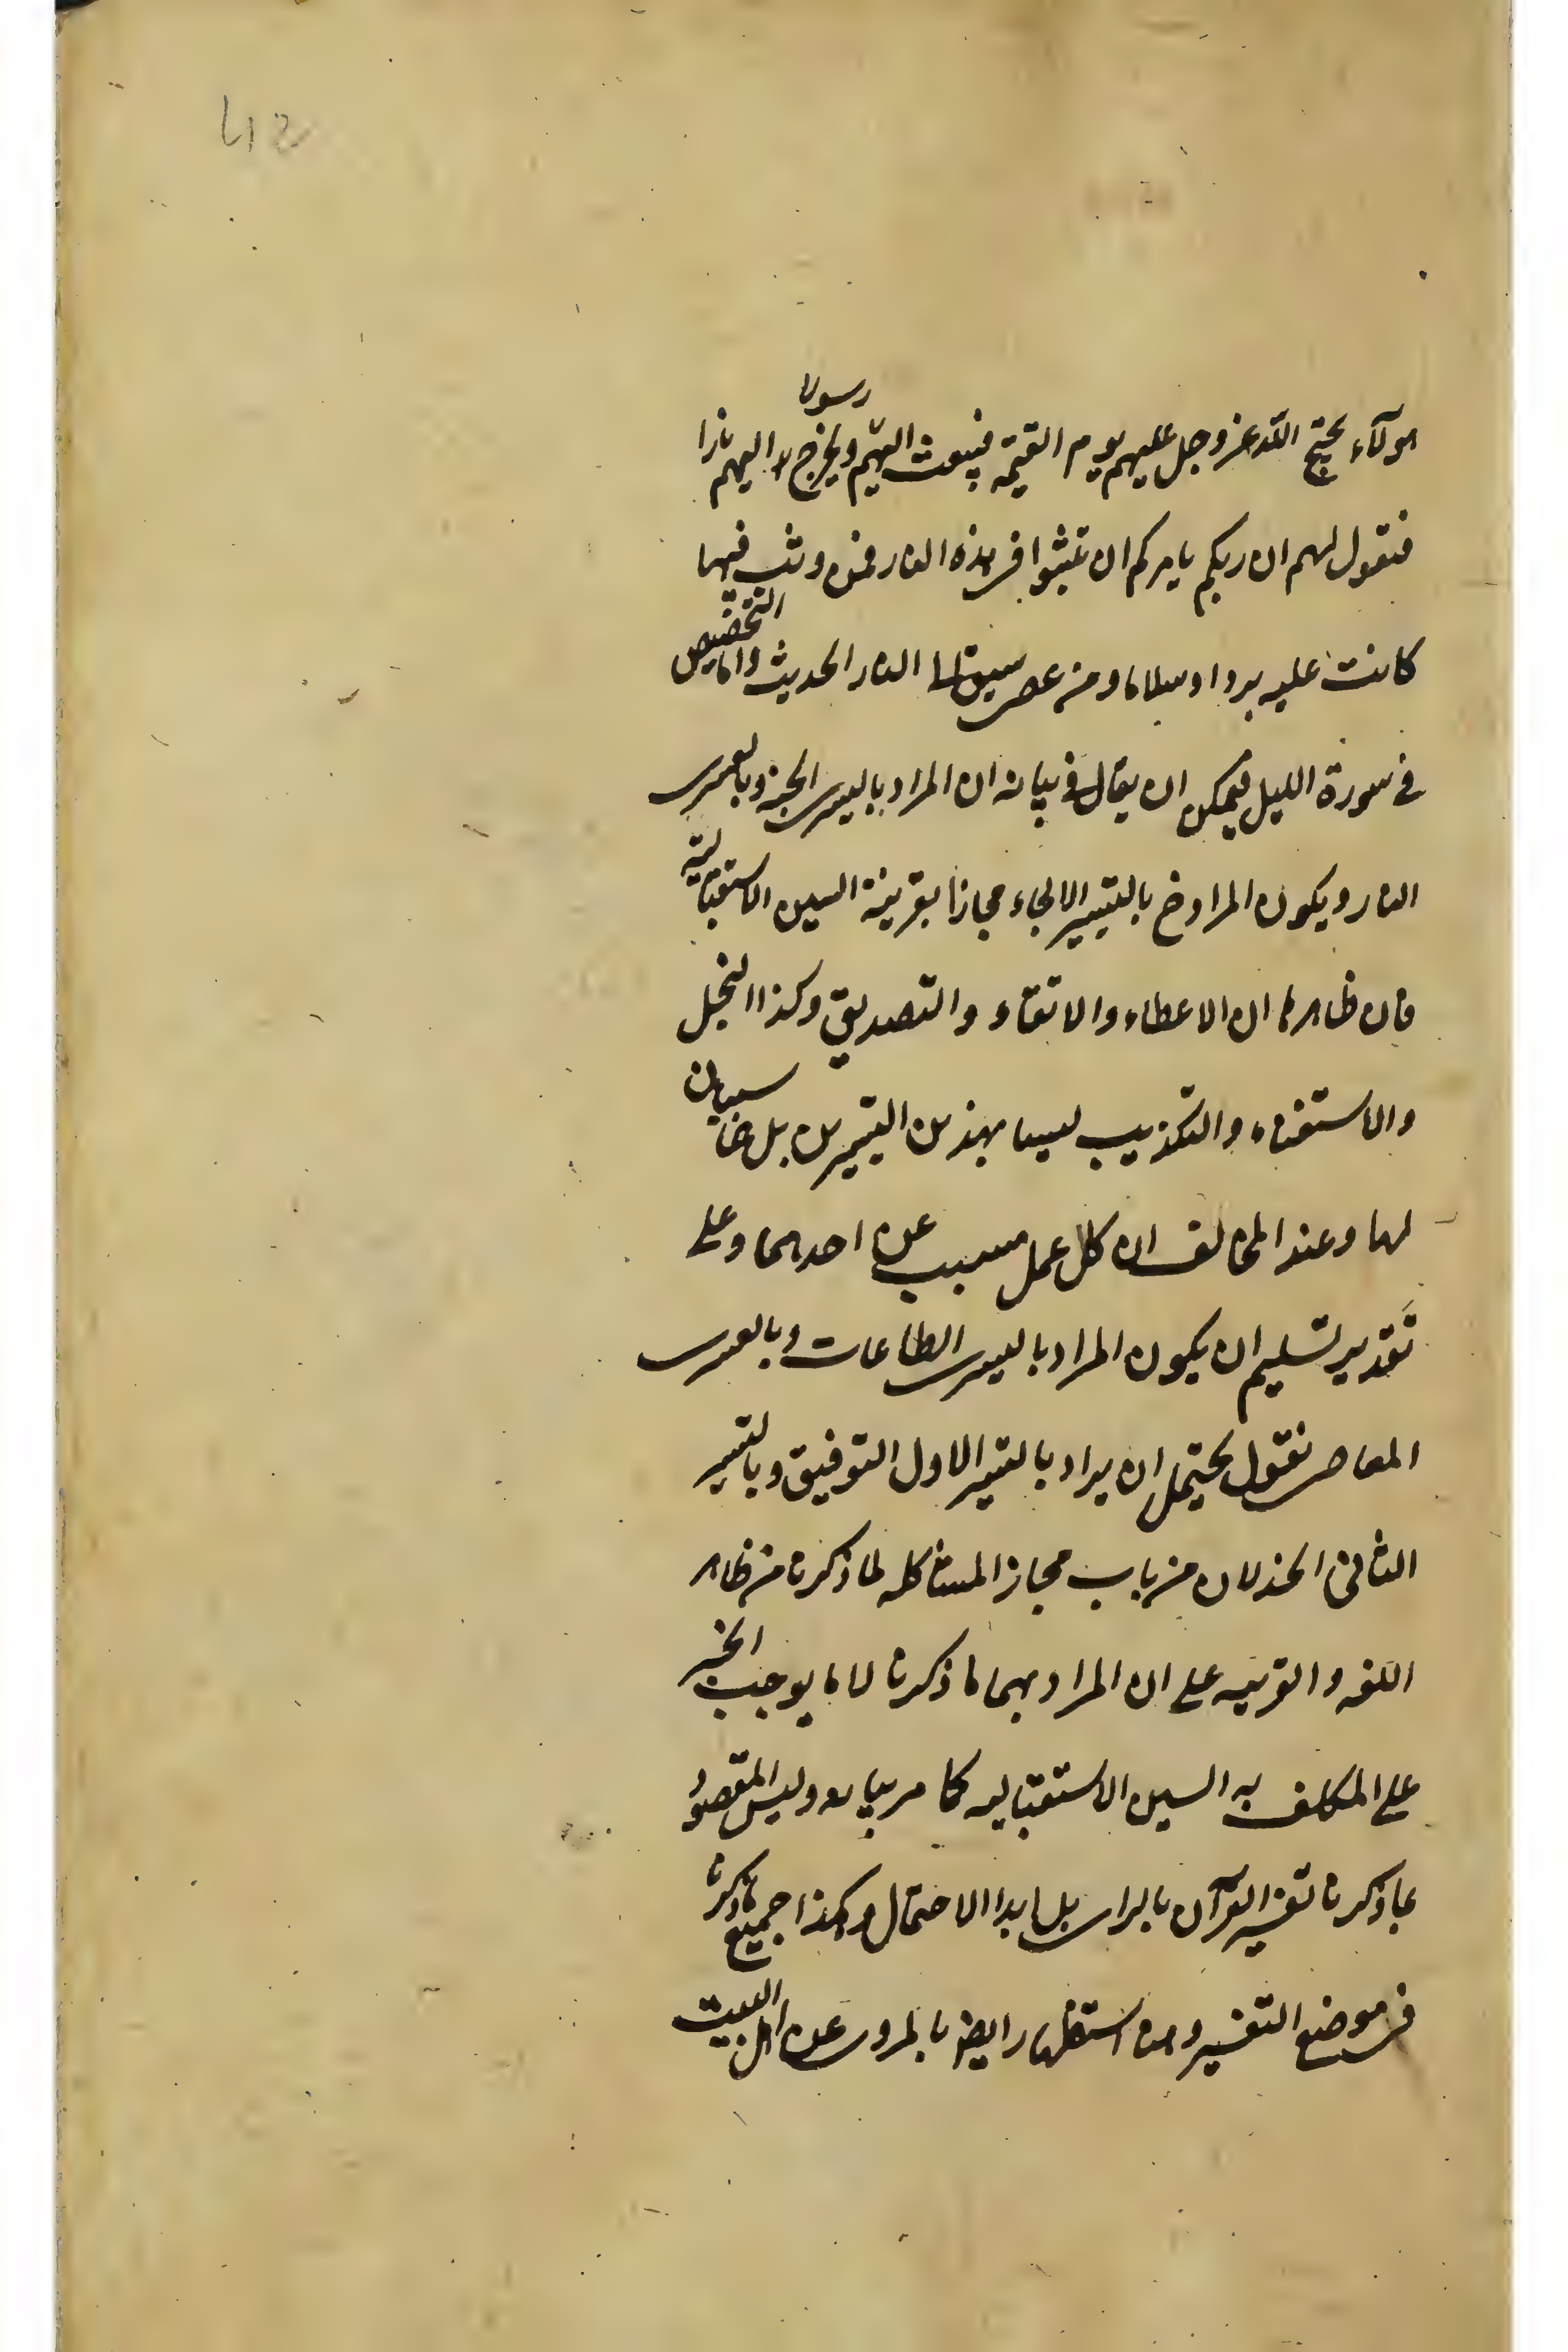 هولآء يحتج الله عز وجل عليهم يوم القيمة فيبعث اليهم رسولا ويخرج اليهم نارا
فيقول لهم ان ربكم يامركم ان تثبوا في هذه النار فمن وثب فيها
كانت عليه بردا وسلاما ومن عصى سيق الى النار الحديث واما التخصيص
في سورة الليل فيمكن ان يقال في بيانه ان المراد باليسرى الجنة وبالعسرى
النار ويكون المراد ح بالتيسير الالجاء مجازا بقرينة السين الاستقبالية
فان ظاهرها ان الاعطاء والاتقاء والتصديق وكذا البخل
والاستغناء والتكذيب ليسا بهذين التيسيرين بل هما سببان
لهما وعند المخالف ان كل عمل مسبب عن احدهما وعلى
تقدير تسليم ان يكون المراد باليسرى الطاعات وبالعسرى
المعاصي نقول يحتمل ان يراد بالتيسير الاول التوفيق وبالتيسير
الثاني الخذلان من باب مجاز المشاكله لما ذكرنا من ظاهر
اللغه والقرينه على ان المراد بهما ما ذكرنا لا ما يوجب الجبر
على المكلف به السين الاستقباليه كما مر بيانه وليس المقصود
بما ذكرنا تفسير القرآن بالراى بل ابدا الاحتمال وكذا جميع ما ذكرنا
في موضع التفسير ومن استظهار ايضا بالمروى عن اهل البيت